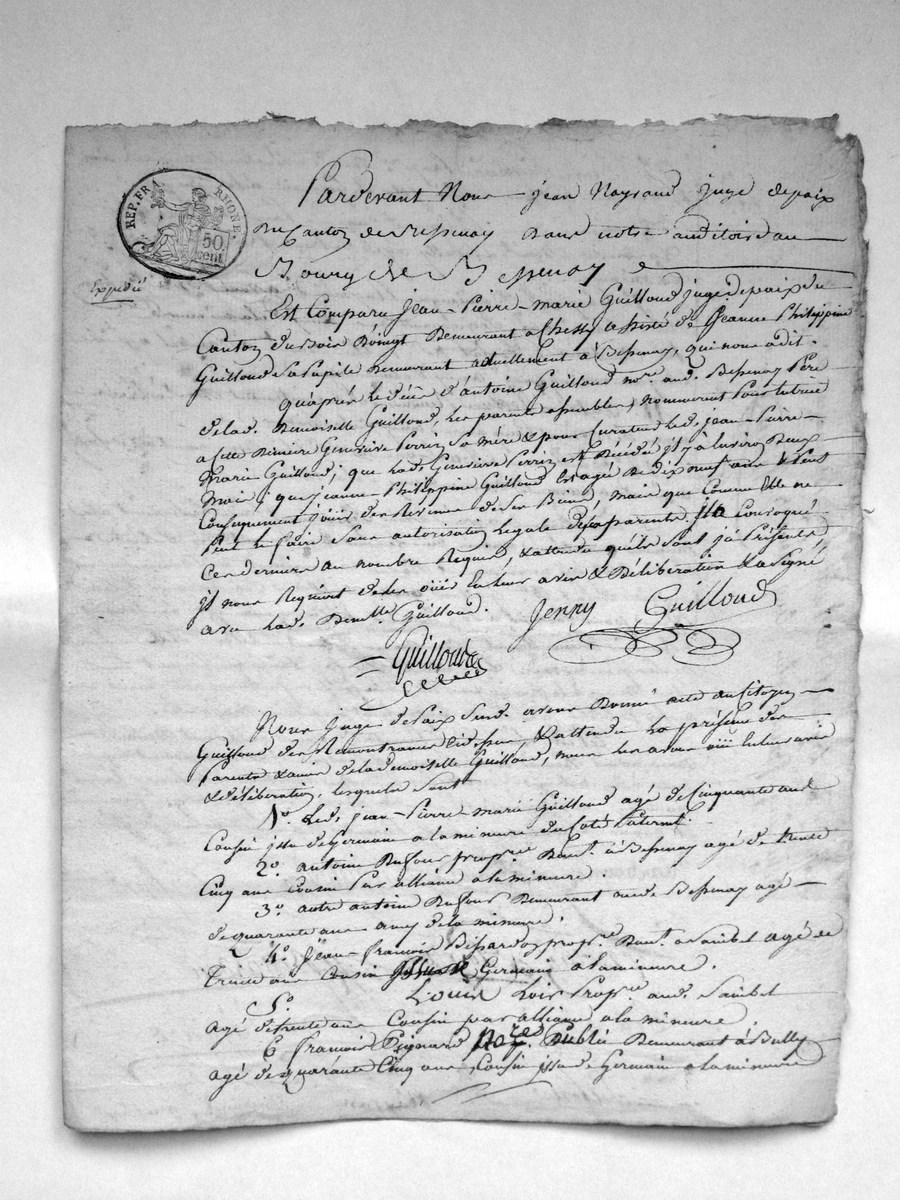 REP. FR. RHONE.
50 cent
expedié
Pardevant Nous jean Noyraud juge depaix
du Canton de Bessenay dans notre auditoire au
Bourg de Bessenay
Est Comparu Jean-Pierre-marie Guilloud juge depaix du
Canton du bois Doingt Demeurant a Chessy assisté de Jeanne Philippine
Guilloud sa Pupile Demeurant actuellement à Bessenay, qui nous a dit.
qu'après le décès d'antoine Guilloud nore. aud. Bessenay Père
delad. Demoiselle Guilloud, les parents assemblés, nommerent Pour tutrice
a cette Derniere Genevieve Perrin sa mère & pour curateur led. jean-Pierre-
Marie Guilloud; que lad. Genevieve Perrin est Décédé il y a environ Deux
Mois; que jeanne-Philippine Guilloud est agé de dix neuf ans & Peut
Conséquemment jouir des Revenus de ses Biens, mais que Comme Elle ne
Peut le faire sans autorisation Legale de ses parents, il a convoqué
ces derniers au nombre Requis, & attendu qu'ils sont jà Présents
il nous Requiert de les ouir en leur avis & Délibération & a signé
avec lad. Demlle. Guilloud. Jenny Guilloud
Guilloud
Nous juge de Paix susd. avons Donné acte au Citoyen
Guilloud de ses Remontrances cidessus, & attendu la présence des
Parents & amis de lademoiselle Guilloud, nous les avons ouis en leur avis
& délibération, lesquels sont
1o. Led. jean-Pierre marie Guilloud agé de Cinquante ans
Cousin issu de Germain a la mineure du Coté Paternel.
2o. antoine Dufour propre. Dant. à Bessenay agé de trente
Cinq ans Cousin Par alliance a la mineure.
3o. autre antoine Dufour Demeurant aud. Bessenay agé
de quarante ans amy de la mineure.
4o. Jean-francois propre. Dant. a Sainbel agé de
trente ans Cousin Germain à la mineure.
5o. Louis Lois Propre. aud. Sainbel
agé de trente ans Cousin par alliance a la mineure.
6 francois Peignard nore Public Demeurant à Bully
agé de quarante Cinq ans Cousin issu de Germain a la mineure